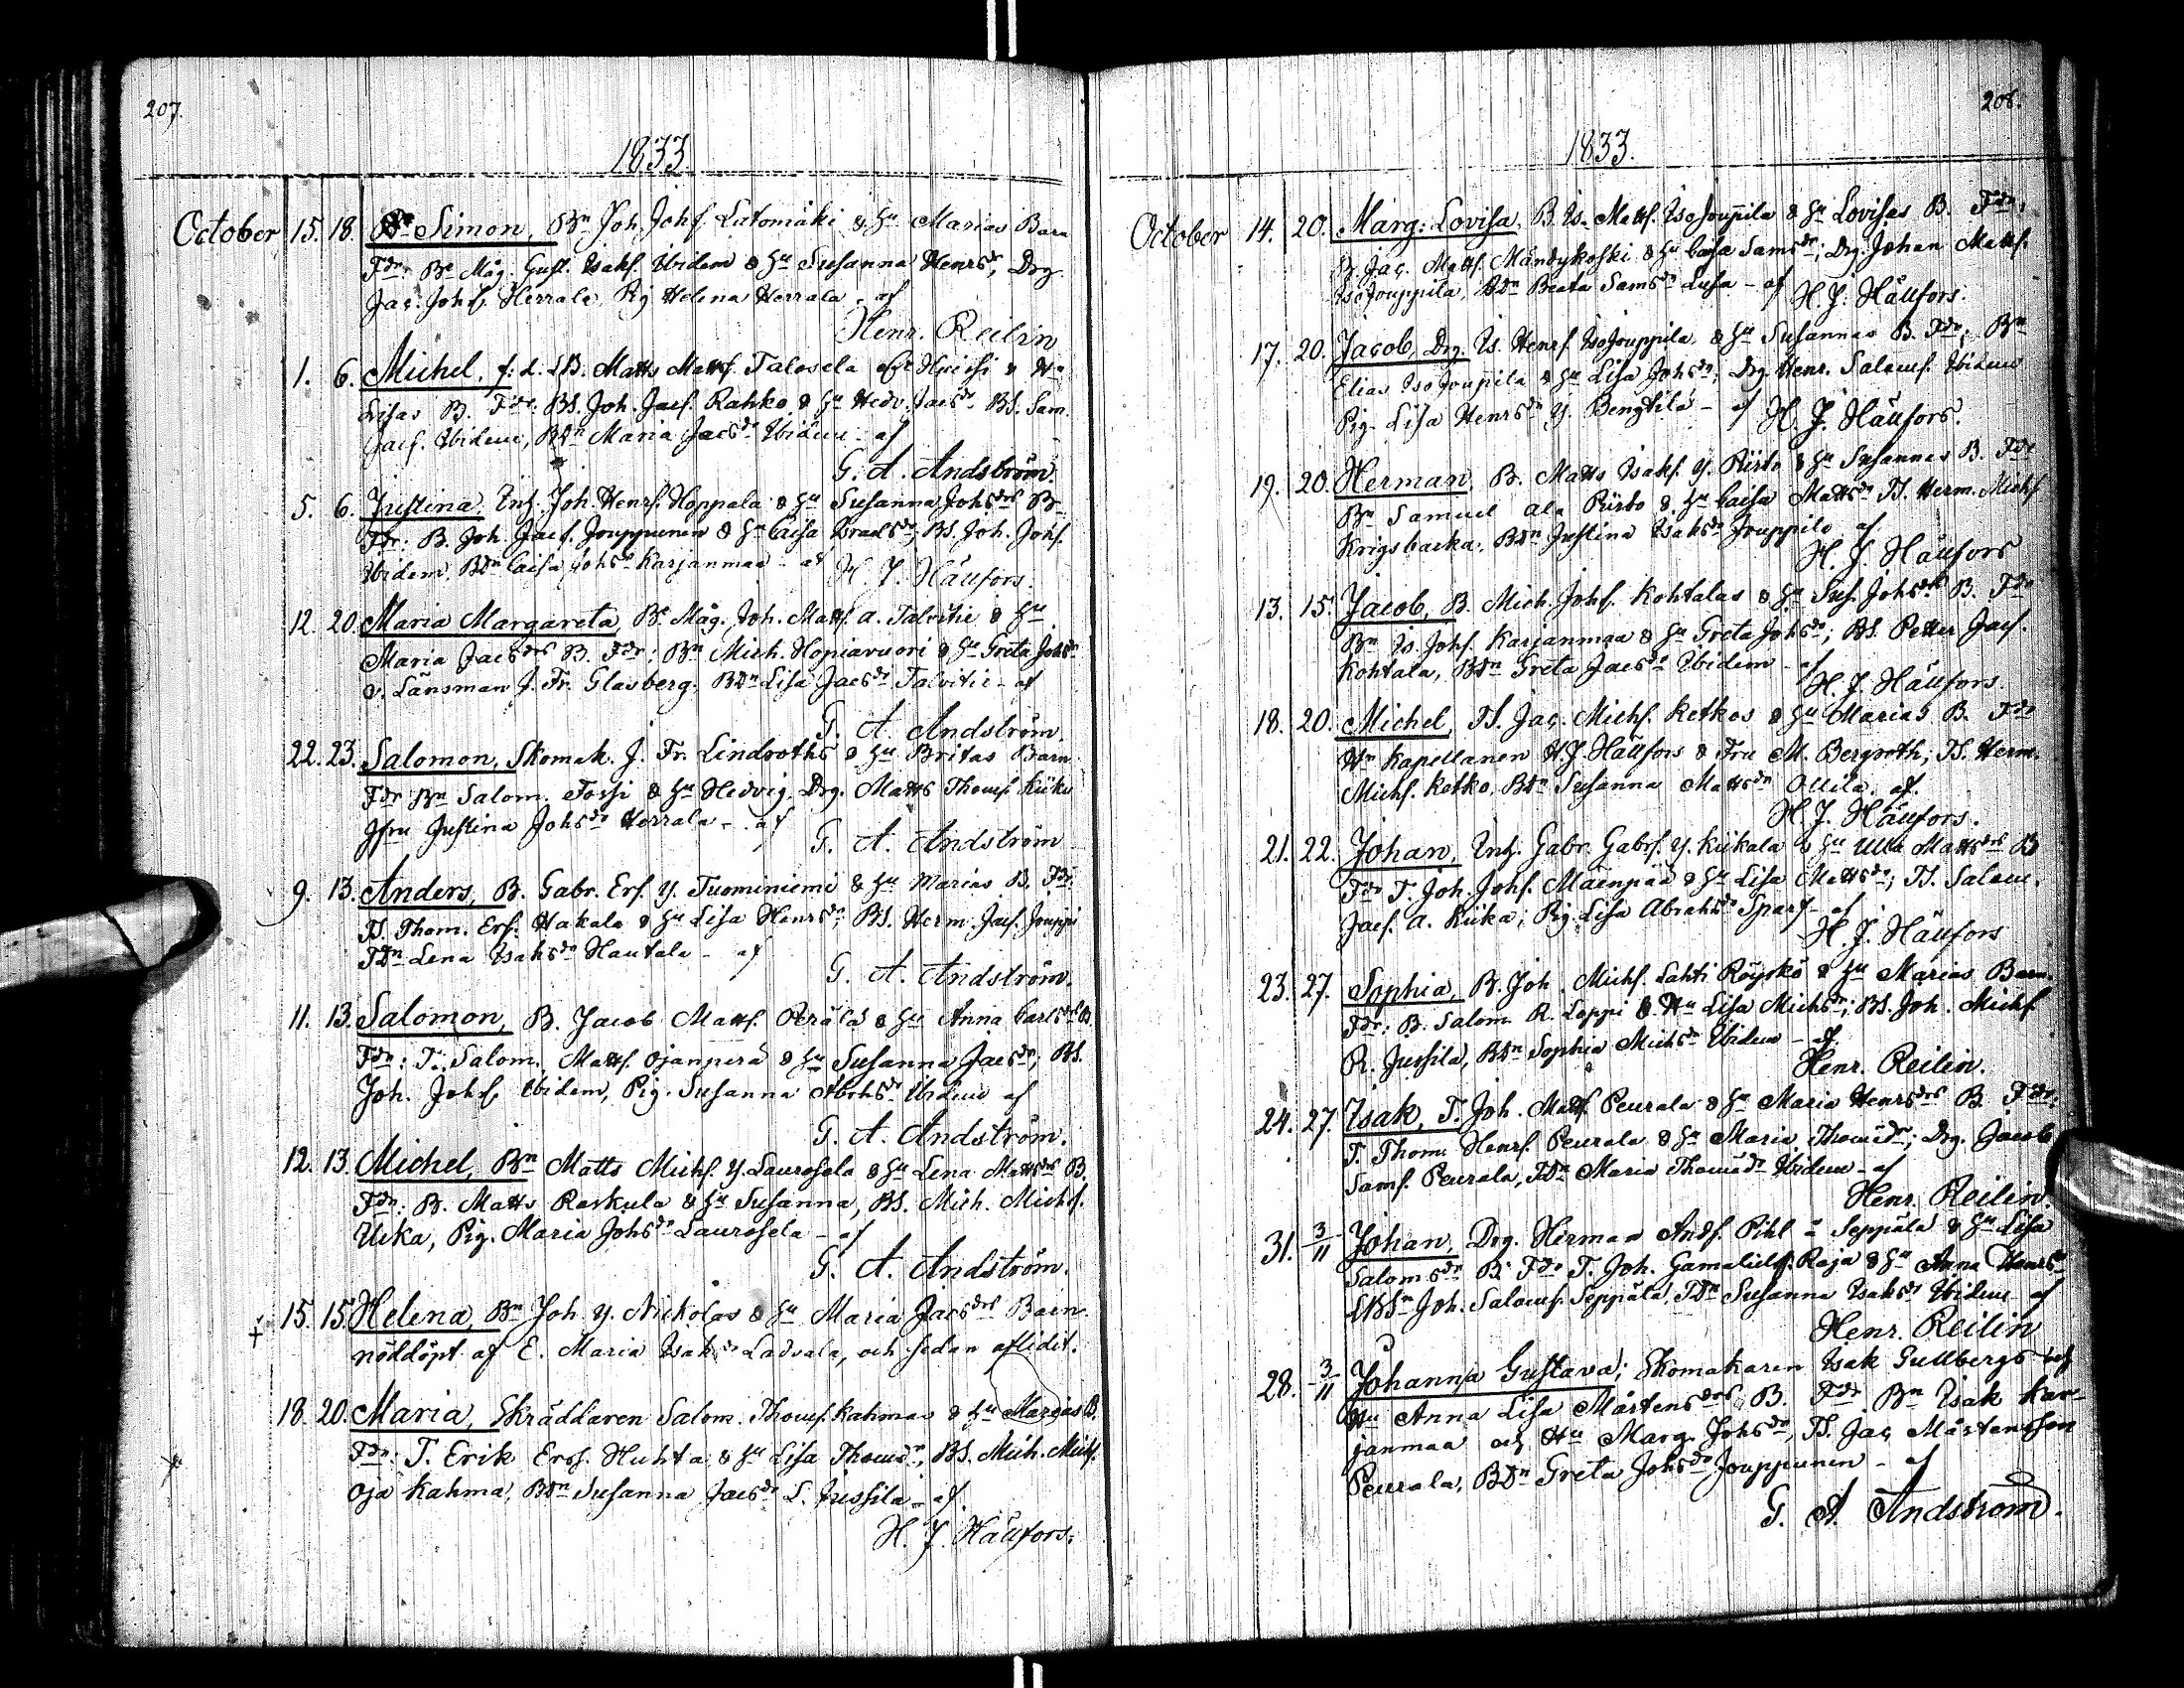 207.
1833.
October 15. 18. Simon, Bn Joh. Johs. Latomäki & Hu Marias Barn
Fdr: Be Måg. Gust. Isaks. Ibidem & Hu Susanna Henrsdr, Drg.
Jac. Johs. Herrala, Pig. Helena Herrala - af
Henr. Reilin
1. 6. Michel, f: d. Matts Matts. Talosela & Hu
Lisas B. Fdr: BS. Joh. Jacs. Rahko & Hu Hedv. Jacsdr BS. Sam.
Jacs. Ibidem, BDn Maria Jacsdr Ibidem - af
G. A. Andström.
5. 6. Justina, Inh. Joh. Henrs. Hoppala & Hu Susanna Johsdrs B.
Fdr: B. Joh. Jacs. Jouppunen & Hu Caisa Israelsdr, BS. Joh. Johs.
Ibidem, BDn Caisa Johsdr Karjanmaa - af H. J. Häufors.
12. 20. Maria Margareta, Be Måg. Joh. Matts. a. Talvitie & Hu
Maria Jacsdrs B. Fdr: Bn Mich. Hopiavuori & Hu Greta Johsdr
v. Länsman J. Fr. Glasberg, BDn Lisa Jacsdr Talvitie - af
G. A. Andström.
22. 23. Salomon, Skomak. J. Fr. Lindroths & Hu Britas Barn
Fdr Bn Salom. Fossi & Hu Hedvig, Drg. Matts Thoms. Kiiko
Jfru Justina Johsdr Herrala - af
G. A. Andström
9. 13. Anders, B. Gabr. Ers. Y. Tuominiemi & Hu Marias B. Fdr:
TS. Thom. Ers. Hakala & Hu Lisa Henrsdr, BS. Herm. Jacs. Jouppi
TDn Lena Isaksdr Hautala - af
G. A. Andström.
11. 13. Salomon, B. Jacob Matts. Perälä & Hu Anna Carlsdrs B.
Fdr: T. Salom. Matts. Ojanperä & Hu Susanna Jacsdr; BS.
Joh. Johs. Ibidem, Pig. Susanna Abrhsdr Ibidem af
G. A. Andström.
12. 13. Michel, Bn Matts Michs. Y. Laurosela & Hu Lena Mattsdrs B.
Fdr: B. Matts Raskula & Hu Susanna, BS. Mich. Michs.
Ucka, Pig. Maria Johsdr Laurosela - af
G. A. Andström.
† 15. 15. Helena, Bn Joh. Y. Nickolas & Hu Maria Jacsdrs Barn
nöddöpt af E. Maria Isaksdr Ladvala, och sedan aflidit.
18. 20. Maria, Skräddaren Salom. Thoms. Kahmas & Hu Marias B.
Fdr: T. Erik Ers. Huhta & Hu Lisa Thomsdr, BS. Mich. Michs.
Oja Kahma, BDn Susanna Jacsdr L. Jussila - af
H. J. Häufors.
208.
1833.
October 14. 20. Marg: Lovisa, B. Is. Matts. Isojouppila & Hu Lovisas B. Fdr:
B. Jac. Matts. Mändykoski & Hu Caisa Samsdr; Drg. Johan Matts.
Isojouppila, BDn Beata Samsdr Lusa - af H. J. Häufors.
17. 20. Jacob, Drg. Is. Henrs. Isojouppila & Hu Susannas B. Fdr: Bn
Elias Isojouppila & Hu Lisa Johsdr; Drg. Henr. Saloms. Ibidem
Pig. Lisa Henrsdr Y. Bengtilä - af H. J. Häufors.
19. 20. Herman, B. Matts Isaks. Y. Piirto & Hu Susannas B. Fdr
Bn Samuel Ala Piirto & Hu Caisa Mattsdr TS. Herm. Michs
Krigsbacka, BDn Justina Isaksdr Jouppila af
H. J. Häufors
13. 15. Jacob, B. Mich. Johs. Kohtalas & Hu Sus. Johsdrs B. Fdr
Bn Is. Johs. Karjanmaa & Hu Greta Johsdr; BS. Petter Jacs.
Kohtala, BDn Greta Jacsdr Ibidem - af
H. J. Häufors.
18. 20. Michel, TS. Jac. Michs. Ketkos & Hu Marias B. Fdr
Hn Kapellanen H. J. Häufors & Fru M. Bergroth, TS. Herm.
Michs. Ketko, BDn Susanna Mattsdr Ollila, af.
H. J. Häufors.
21. 22. Johan, Inh. Gabr. Gabrs. Y. Kiikala & Hu Ulla Mattsdrs B
Fdr T. Joh. Johs. Mäenpää & Hu Lisa Mattsdr; TS. Salom.
Jacs. A. Kiika, Pig. Lisa Abrahsdr Sparf - af
H. J. Häufors
23. 27. Sophia, B. Joh. Michs. Lahti Röyskö & Hu Marias Barn.
Fdr: B. Salom. R. Loppi & Hu Lisa Michsdr; BS. Joh. Michs
R. Jussila, BDn Sophia Michsdr Ibidem - af.
Henr. Reilin.
24. 27. Isak, T. Joh. Matts. Peurala & Hu Maria Henrsdrs B. Fdr:
T. Thom. Henrs. Peurala & Hu Maria Thomsdr; Drg. Jacob
Sams. Peurala, TDn Maria Thomsdr Ibidem - af
Henr. Reilin.
31. 3/11 Johan, Drg. Herman Ands. Pihl å Seppälä & Hu Lisa
Salomsdrs B. Fdr T. Joh. Gamaliels. Raja & Hu Anna Henrsdr
Joh. Saloms. Seppälä, TDn Susanna Isaksdr Ibidem - af
Henr. Reilin
28. 3/11 Johanna Gustava; Skomakaren Isak Gullbergs och
Hu Anna Lisa Mårtensdrs B. Fdr Bn Isak Kar-
janmaa och Hu Marg. Johsdr, TS. Jac Mårtensson
Peurala, BDn Greta Johsdr Jouppunen - af
G. A. Andström.